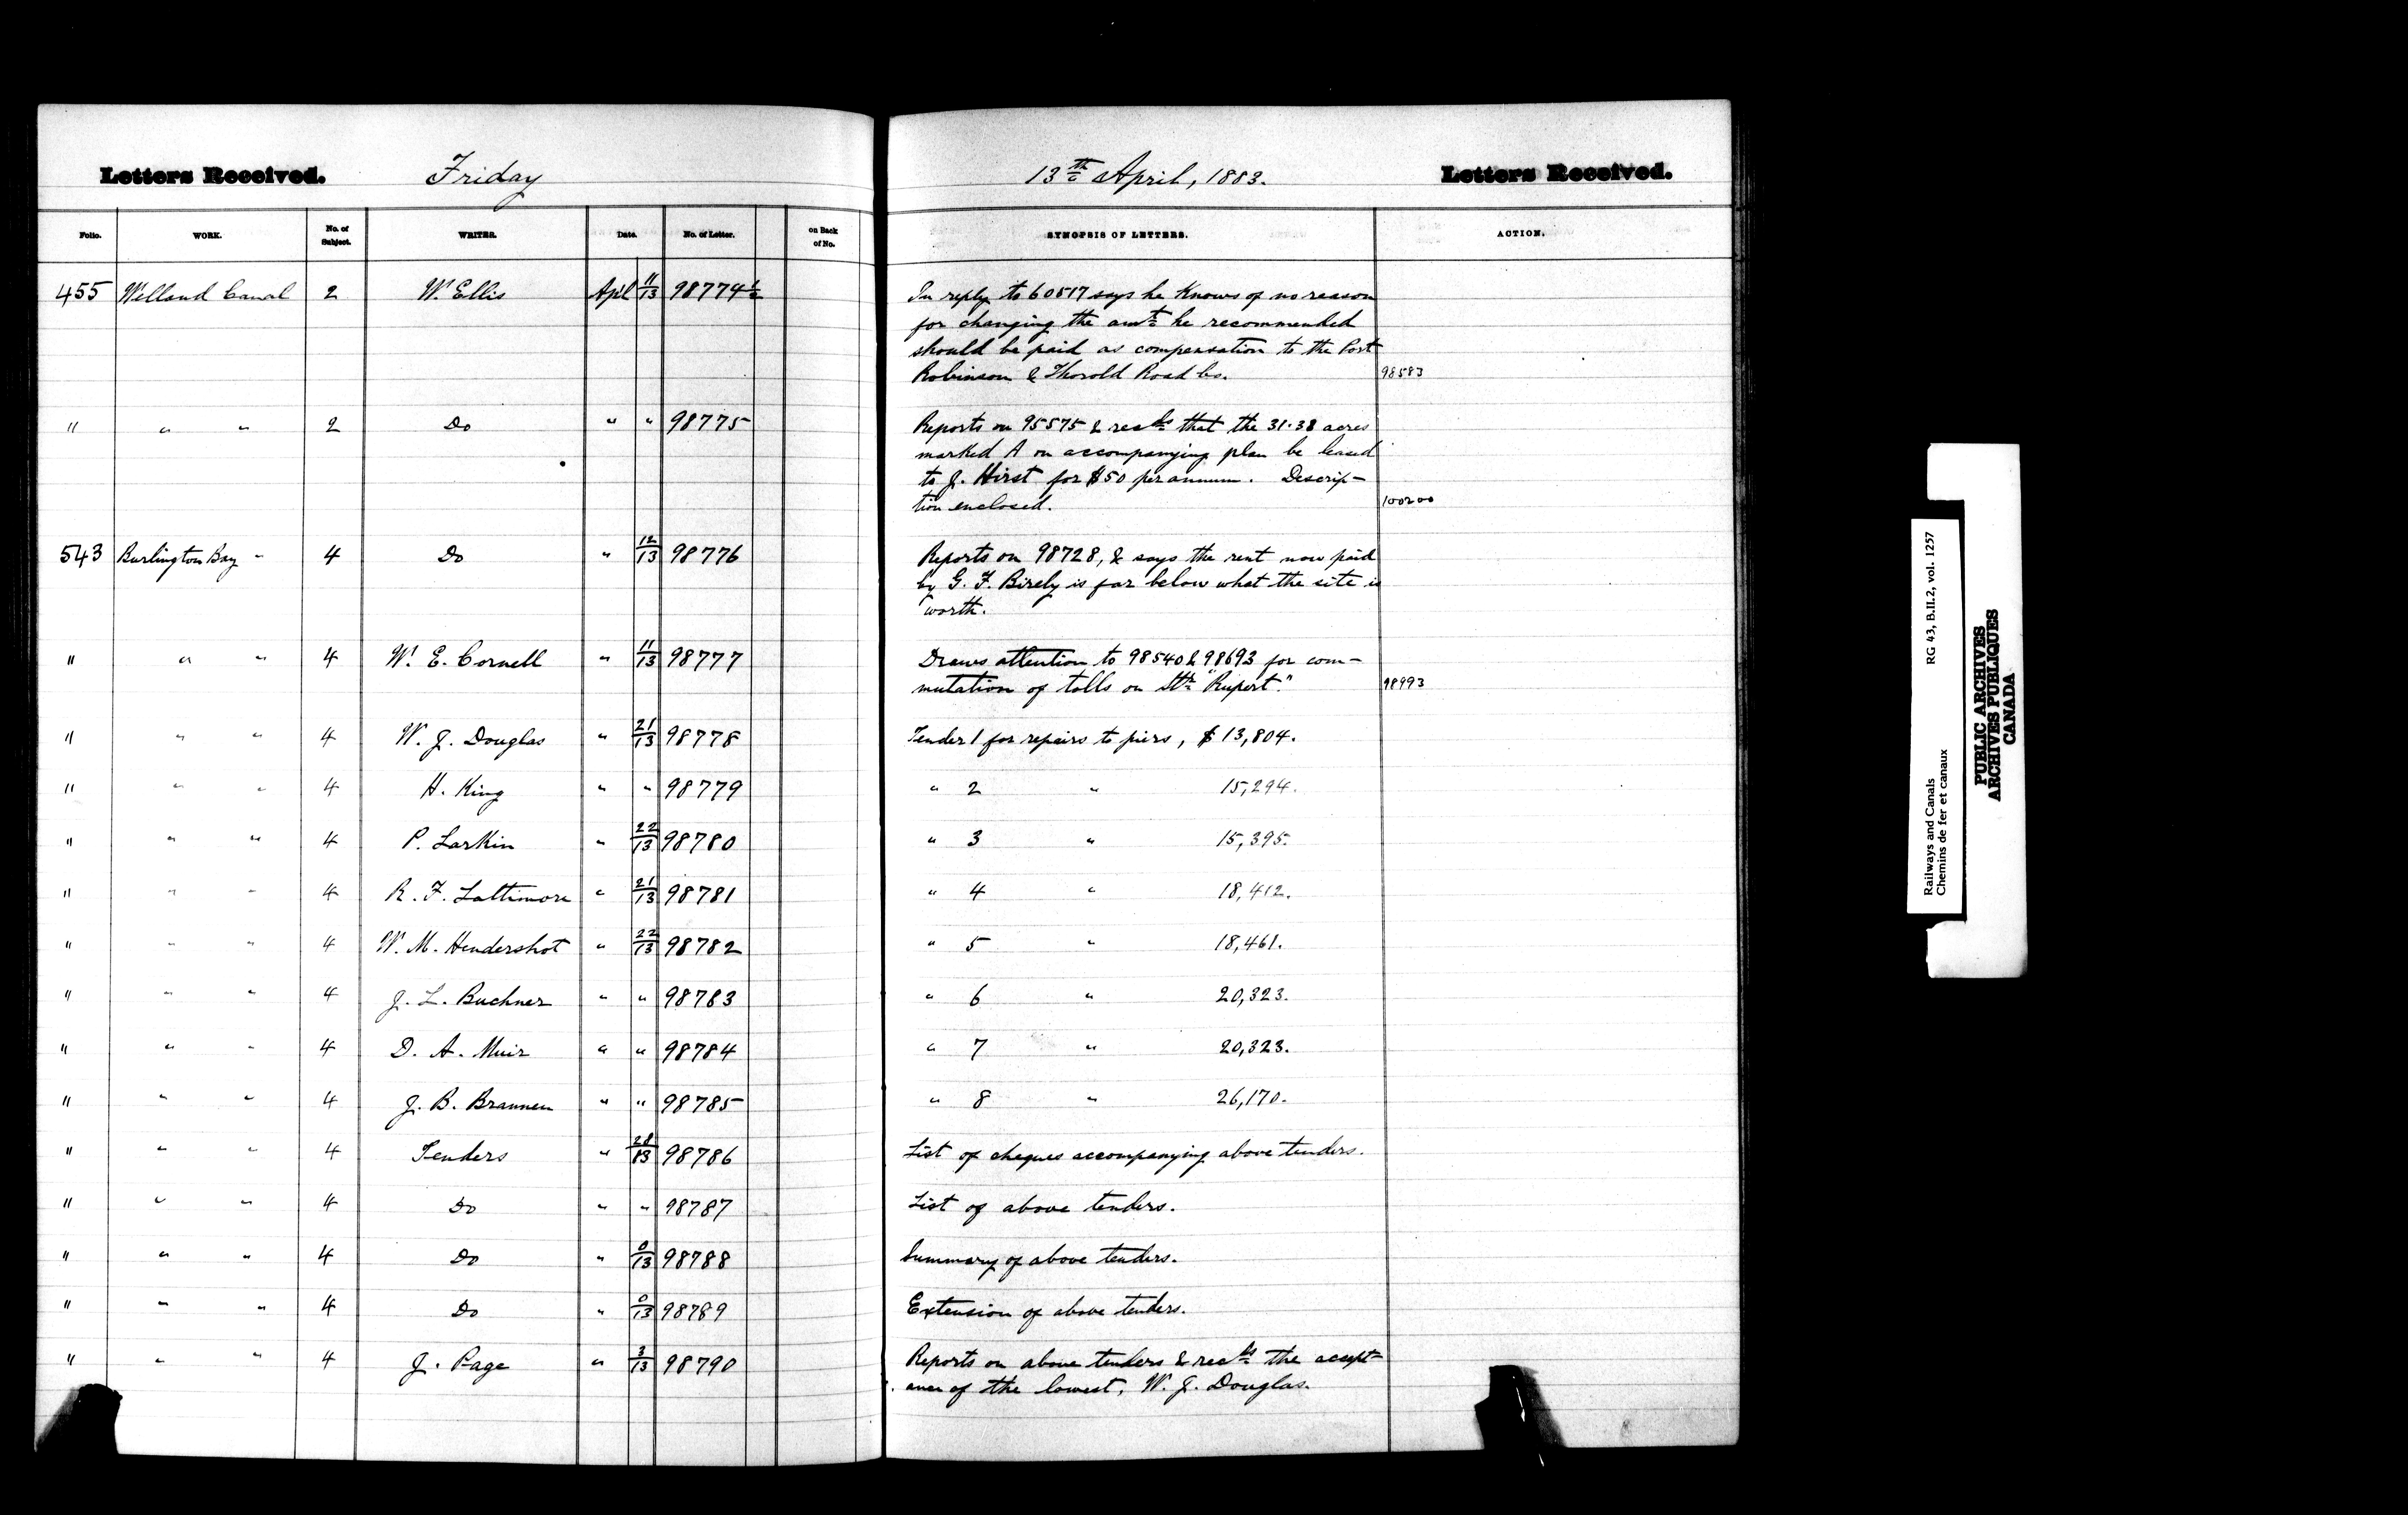 Letters Received. Friday 13th April, 1883. Letters Received.
Folio. WORK. No. of Subject. WRITER. Date. No. of Letter. on Back of No. SYNOPSIS OF LETTERS. ACTION.
455 Welland Canal 2 W. Ellis Apl 11/13 98774½ In reply to 60517 says he knows of no reason
for changing the amt. he recommended
should be paid as compensation to the Port
Robinson & Thorold Road Co. 98583
" " " 2 Do " " 98775 Reports on 95575 & recds that the 31.38 acres
marked A on accompanying plan be leased
to J. Hirst for $50 per annum. Descrip-
tion enclosed. 100200
543 Burlington Bay " 4 Do " 12/13 98776 Reports on 98728, & says the rent now paid
by G. F. Birely is far below what the site is
worth.
" " " 4 W. E. Cornell " 11/13 98777 Draws attention to 98540 & 98693 for com-
mutation of tolls on Str. "Rupert." 98993
" " " 4 W. J. Douglas " 21/13 98778 Tender 1 for repairs to piers, $13,804.
" " " 4 H. King " " 98779 " 2 " 15,294.
" " " 4 P. Larkin " 22/13 98780 " 3 " 15,395.
" " " 4 R. F. Lattimore " 21/13 98781 " 4 " 18,412.
" " " 4 W. M. Hendershot " 22/13 98782 " 5 " 18,461.
" " " 4 J. L. Buchner " " 98783 " 6 " 20,323.
" " " 4 D. A. Muir " " 98784 " 7 " 20,323.
" " " 4 J. B. Brannen " " 98785 " 8 " 26,170.
" " " 4 Tenders " 28/13 98786 List of cheques accompanying above tenders.
" " " 4 Do " " 98787 List of above tenders.
" " " 4 Do " 0/13 98788 Summary of above tenders.
" " " 4 Do " 0/13 98789 Extension of above tenders.
" " " 4 J. Page " 3/13 98790 Reports on above tenders & recds the accept-
ance of the lowest, W. J. Douglas.
Railways and Canals RG 43, B.II.2, vol. 1257
Chemins de fer et canaux
PUBLIC ARCHIVES
ARCHIVES PUBLIQUES
CANADA